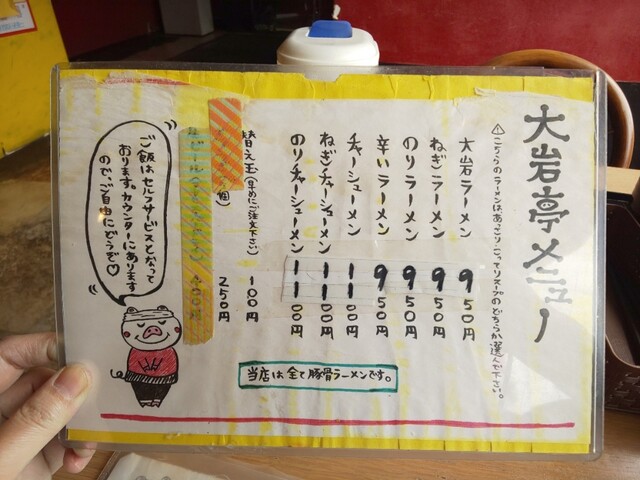 大岩亭メニュー
⚠こちらのラーメンはあっさり・こってりスープのどちらか選んで下さい。
大岩ラーメン 950円
ねぎラーメン 950円
のりラーメン 950円
辛いラーメン 950円
チャーシューメン 1100円
ねぎチャーシューメン 1100円
のりチャーシューメン 1100円
替え玉(早めにご注文下さい) 100円
個) 250円
400円
ご飯はセルフサービスとなって
おります。カウンターにあります
ので、ご自由にどうぞ♡
当店は全て豚骨ラーメンです。